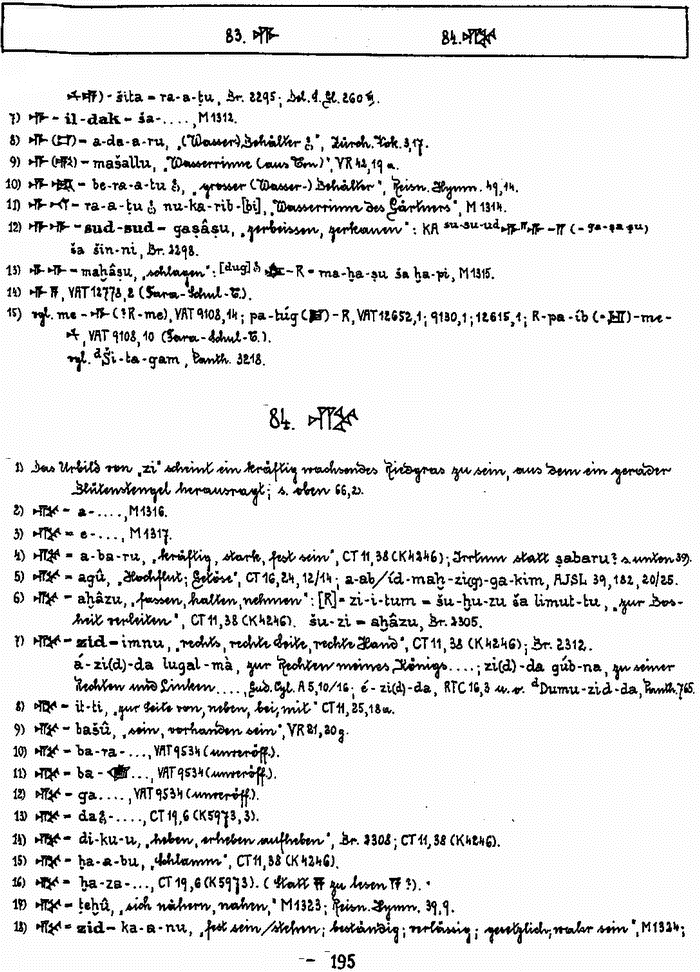 83. 𒋃 84. 𒍣
) - šita = ra-a-ṭu, Br. 2295; Del. S. Gl. 260
7) 𒋃 - il-dak = ša-...., M 1312.
8) 𒋃 () = a-da-a-ru, „(Wasser) Behälter", Zürch. Vok. 3,17.
9) 𒋃 () = mašallu, „Wasserrinne (aus Ton)", VR 42,19 a.
10) 𒋃 = be-ra-a-tu, „grosser (Wasser-) Behälter", Reisn. Hymn. 49,14.
11) 𒋃 = ra-a-ṭu nu-ka-rib-[bi], „Wasserrinne des Gärtners", M 1314.
12) 𒋃 𒋃 = sud-sud = gaṣâṣu, „zerbeissen, zerkauen": KA su-su-ud 𒋃 𒋃 (= ga-ṣa-ṣu)
ša šin-ni, Br. 2298.
13) 𒋃 𒋃 = maḫâṣu, „schlagen": [dug] - R = ma-ḫa-ṣu ša ḫa-pi, M 1315.
14) 𒋃, VAT 12778, 2 (Fara-Schul-T.).
15) vgl. me - 𒋃 (? R-me), VAT 9108, 14; pa-túg () - R, VAT 12652, 1; 9130, 1; 12615, 1; R-pa-íb () - me-
, VAT 9108, 10 (Fara-Schul-T.).
vgl. ᵈŠi-ta-gam, Panth. 3218.
84. 𒍣
1) Das Urbild von „zi" scheint ein kräftig wachsendes Riedgras zu sein, aus dem ein gerader
Blütenstengel herausragt; s. oben 66, 2).
2) 𒍣 = a-...., M 1316.
3) 𒍣 = e-..., M 1317.
4) 𒍣 = a-ba-ru, „kräftig, stark, fest sein", CT 11, 38 (K 4246); Irrtum statt ṣabaru? s. unten 39).
5) 𒍣 = agû, „Hochflut; Getöse", CT 16, 24, 12/14; a-ab/íd-maḫ-zi(g)-ga-kim, AJSL 39, 182, 20/25.
6) 𒍣 = aḫâzu, „fassen, halten, nehmen": [R] = zi-i-tum = šu-ḫu-zu ša limut-tu, „zur Bos-
heit verleiten", CT 11, 38 (K 4246). šu-zi = aḫâzu, Br. 2305.
7) 𒍣 = zid = imnu, „rechts, rechte Seite, rechte Hand", CT 11, 38 (K 4246); Br. 2312.
á-zi(d)-da lugal-mà, zur Rechten meines Königs....; zi(d)-da gúb-na, zu seiner
Rechten und Linken...., Gud. Cyl. A 5, 10/16; é-zi(d)-da, RTC 16, 3 u. ö. ᵈDumu-zid-da, Panth. 765.
8) 𒍣 = it-ti, „zur Seite von, neben, bei, mit" CT 11, 25, 18 a.
9) 𒍣 = bašû, „sein, vorhanden sein", VR 21, 20 g.
10) 𒍣 = ba-ra-..., VAT 9534 (unveröff.).
11) 𒍣 = ba-..., VAT 9534 (unveröff.).
12) 𒍣 = ga...., VAT 9534 (unveröff.).
13) 𒍣 = daḫ-...., CT 19, 6 (K 5973, 3).
14) 𒍣 = di-ku-u, „heben, erheben aufheben", Br. 2308; CT 11, 38 (K 4246).
15) 𒍣 = ḫa-a-bu, „Schlamm", CT 11, 38 (K 4246).
16) 𒍣 = ḫa-za-..., CT 19, 6 (K 5973). (Statt 𒍝 zu lesen 𒀀?).
17) 𒍣 = ṭeḫû, „sich nähern, nahen," M 1323; Reisn. Hymn. 39, 9.
18) 𒍣 = zid = ka-a-nu, „fest sein/stehen; beständig; verlässig; gesetzlich, wahr sein", M 1324;
- 195